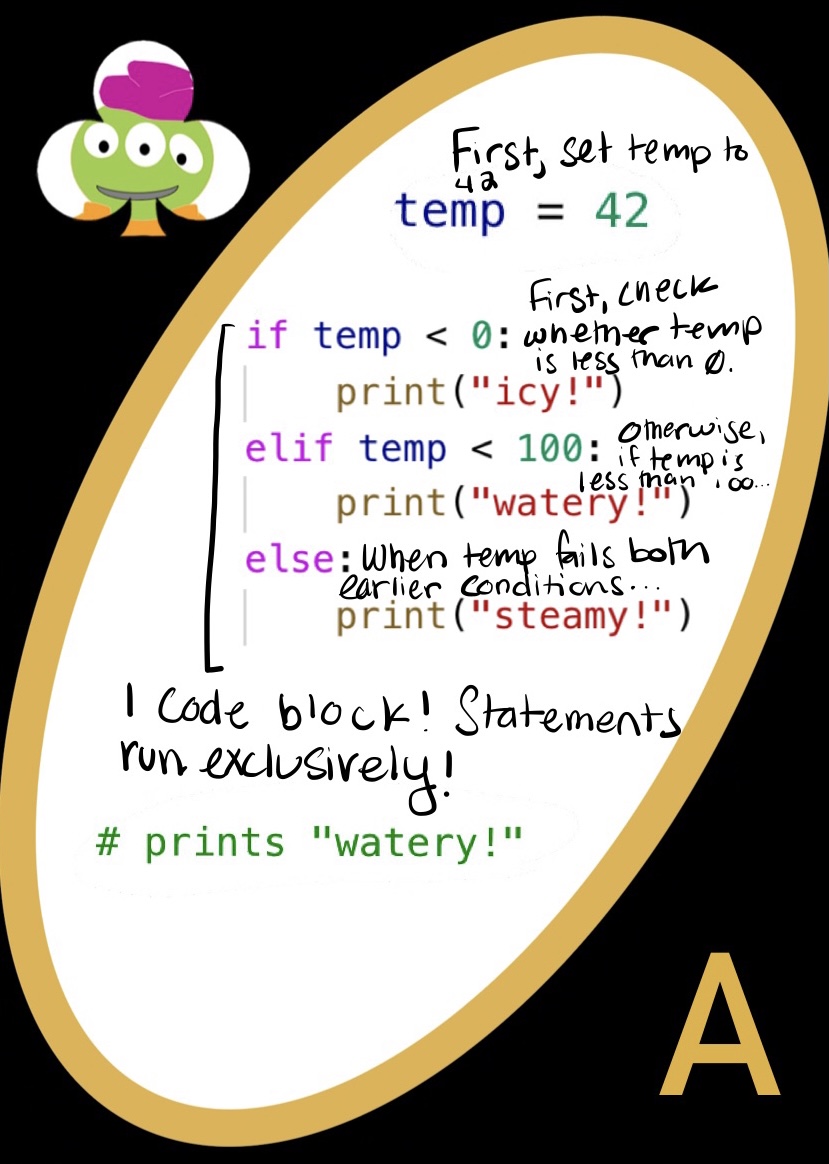 First, set temp to
42
temp = 42
First, check
if temp < 0: whether temp
is less than 0.
print("icy!")
elif temp < 100: otherwise,
if temp is
less than 100...
print("watery!")
else: When temp fails both
earlier conditions...
print("steamy!")
1 Code block! Statements
run exclusively!
# prints "watery!"
A